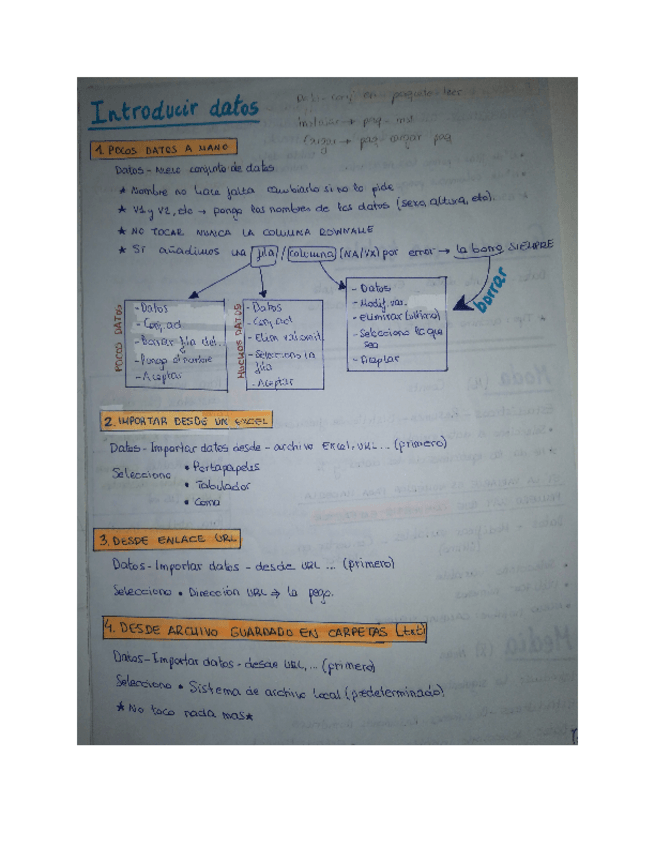 Introducir datos
1. POCOS DATOS A MANO
Datos - Nuevo conjunto de datos
★ Nombre no hace falta cambiarlo si no lo pide
★ V1 y V2, etc → pongo los nombres de los datos (sexo, altura, etc).
★ NO TOCAR NUNCA LA COLUMNA ROWNAME
★ Si añadimos una fila / columna (NA/VX) por error → la borro SIEMPRE
borrar
POCOS DATOS
- Datos
- Conj. act
- Borrar fila del..
- Pongo el nombre
- Aceptar
MUCHOS DATOS
- Datos
- Conj. act
- Elim val omit.
- Selecciono la
fila
- Aceptar
- Datos
- Modif. var.
- Eliminar (último)
- Selecciono la que
sea
- Aceptar
2. IMPORTAR DESDE UN EXCEL
Datos - Importar datos desde - archivo EXCEL, URL ... (primero)
Selecciono • Portapapeles
• Tabulador
• Coma
3. DESDE ENLACE URL
Datos - Importar datos - desde URL ... (primero)
Selecciono • Dirección URL → la pego.
4. DESDE ARCHIVO GUARDADO EN CARPETAS (.txt)
Datos - Importar datos - desde URL, ... (primero)
Selecciono • Sistema de archivo local (predeterminado)
★ No toco nada mas ★